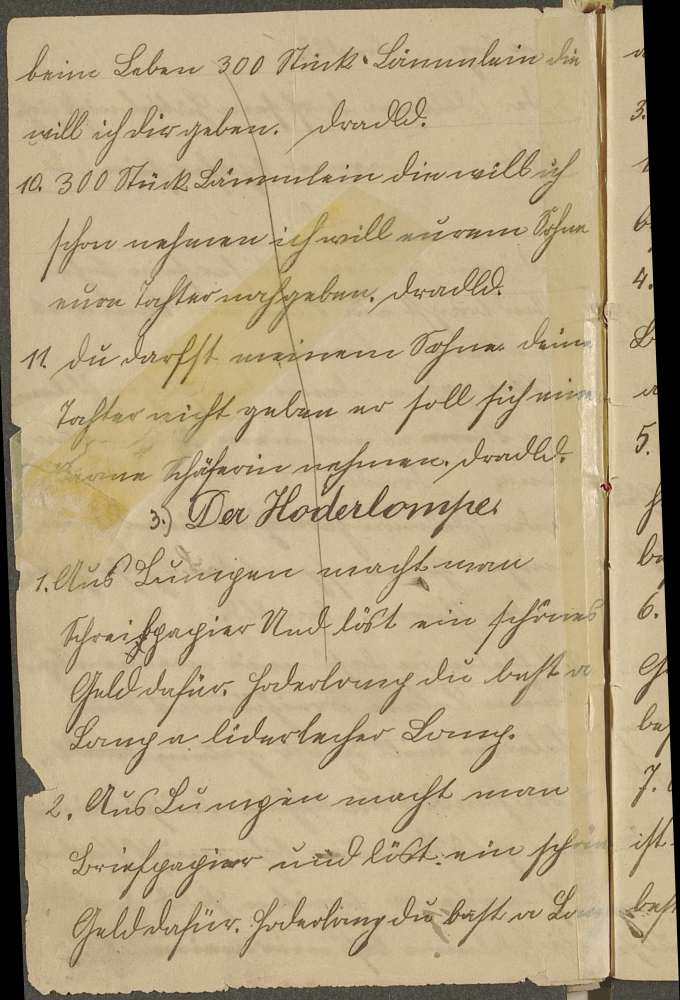 beim Leben 300 Stück Lämmelein die
will ich dir geben. dradld.
10. 300 Stück Lämmlein die will ich
schon nehmen ich will eurem Sohne
eure Tochter nachgeben. dradld.
11. du darfst meinem Sohne deine
Tochter nicht geben er soll sich eine
Schäferin nehmen. dradld.
3.) Der Hoderlompe.
1. Aus Lumpen macht man
Schreibpapier Und löst ein schönes
Geld dafür. Hoderlomp du bast a
Lomp a liderlecher Lomp.
2. Aus Lumpen macht man
Briefpapier und löst ein
Geld dafür. Hoderlomp du bast a